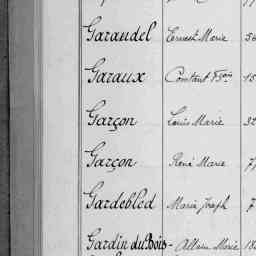 Garaudel Ernest Marie
Garaux Constant Fçois
Garçon Louis Marie
Garçon René Marie
Gardebled Marie Joseph
Gardin du Bois- Allain Marie